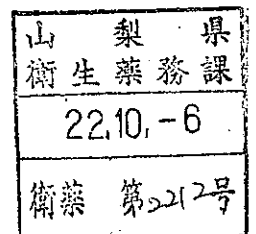 山梨県
衛生薬務課
22.10.-6
衛薬 第2212号